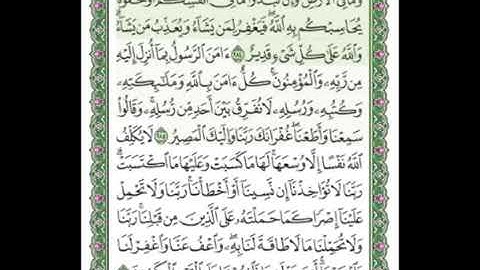 وَمَا فِي ٱلْأَرْضِ وَإِن تُبْدُوا۟ مَا فِىٓ أَنفُسِكُمْ أَوْ تُخْفُوهُ
يُحَاسِبْكُم بِهِ ٱللَّهُ ۖ فَيَغْفِرُ لِمَن يَشَآءُ وَيُعَذِّبُ مَن يَشَآءُ ۗ
وَٱللَّهُ عَلَىٰ كُلِّ شَىْءٍ قَدِيرٌ ٢٨٤ ءَامَنَ ٱلرَّسُولُ بِمَآ أُنزِلَ إِلَيْهِ
مِن رَّبِّهِۦ وَٱلْمُؤْمِنُونَ ۚ كُلٌّ ءَامَنَ بِٱللَّهِ وَمَلَـٰٓئِكَتِهِۦ
وَكُتُبِهِۦ وَرُسُلِهِۦ لَا نُفَرِّقُ بَيْنَ أَحَدٍ مِّن رُّسُلِهِۦ ۚ وَقَالُوا۟
سَمِعْنَا وَأَطَعْنَا ۖ غُفْرَانَكَ رَبَّنَا وَإِلَيْكَ ٱلْمَصِيرُ ٢٨٥ لَا يُكَلِّفُ
ٱللَّهُ نَفْسًا إِلَّا وُسْعَهَا ۚ لَهَا مَا كَسَبَتْ وَعَلَيْهَا مَا ٱكْتَسَبَتْ ۗ
رَبَّنَا لَا تُؤَاخِذْنَآ إِن نَّسِينَآ أَوْ أَخْطَأْنَا ۚ رَبَّنَا وَلَا تَحْمِلْ
عَلَيْنَآ إِصْرًا كَمَا حَمَلْتَهُۥ عَلَى ٱلَّذِينَ مِن قَبْلِنَا ۚ رَبَّنَا
وَلَا تُحَمِّلْنَا مَا لَا طَاقَةَ لَنَا بِهِۦ ۖ وَٱعْفُ عَنَّا وَٱغْفِرْ لَنَا